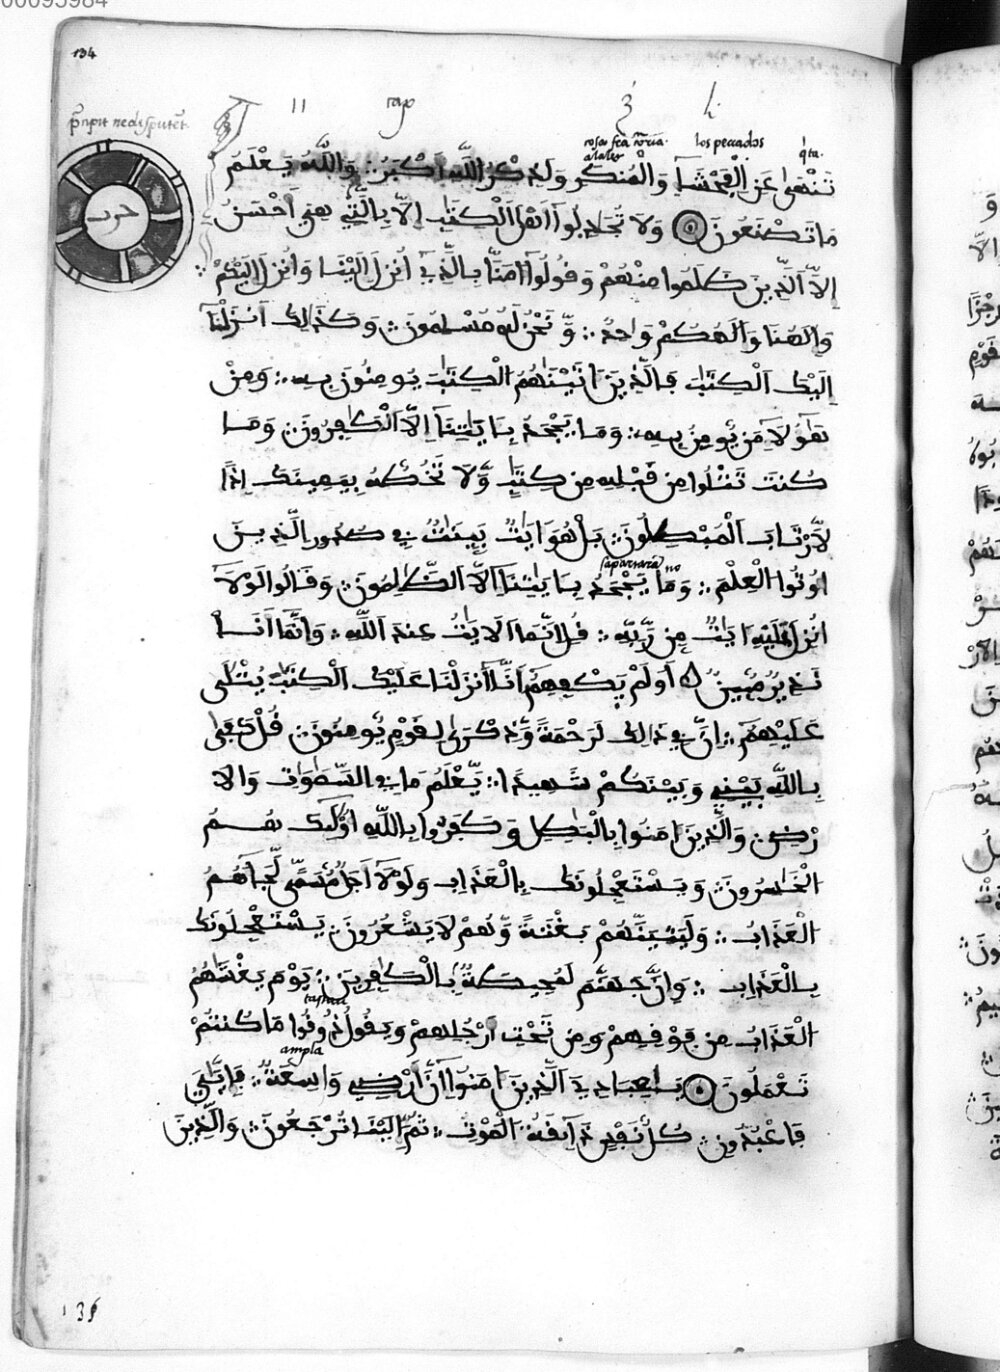 00095984
134
11 cap 3 h.
p̄cipit ne disputēt.
cosas fea los pecados q̄ta.
تَنْهَىٰ عَنِ اِ۬لْفَحْشَآءِ وَالْمُنكَرِ وَلَذِكْرُ اُ۬للَّهِ أَكْبَرُ وَاللَّهُ يَعْلَمُ
حزب
مَا تَصْنَعُونَ وَلَا تُجَٰدِلُوٓاْ أَهْلَ اَ۬لْكِتَٰبِ إِلَّا بِالَّتِے هِيَ أَحْسَنُ
إِلَّا اَ۬لَّذِينَ ظَلَمُواْ مِنْهُمْ وَقُولُوٓاْ ءَامَنَّا بِالَّذِےٓ أُنزِلَ إِلَيْنَا وَأُنزِلَ إِلَيْكُمْ
وَإِلَٰهُنَا وَإِلَٰهُكُمْ وَٰحِدٌ وَنَحْنُ لَهُ مُسْلِمُونَ وَكَذَٰلِكَ أَنزَلْنَآ
إِلَيْكَ اَ۬لْكِتَٰبَ فَالَّذِينَ ءَاتَيْنَٰهُمُ اُ۬لْكِتَٰبَ يُومِنُونَ بِهِ وَمِنْ
هَٰٓؤُلَآءِ مَن يُومِنُ بِهِ وَمَا يَجْحَدُ بِـَٔايَٰتِنَآ إِلَّا اَ۬لْكَٰفِرُونَ وَمَا
كُنتَ تَتْلُواْ مِن قَبْلِهِ مِن كِتَٰبٍ وَلَا تَخُطُّهُ بِيَمِينِكَ إِذًا
لَّارْتَابَ اَ۬لْمُبْطِلُونَ بَلْ هُوَ ءَايَٰتٌ بَيِّنَٰتٌ فِے صُدُورِ اِ۬لَّذِينَ
saparrara no
أُوتُواْ اُ۬لْعِلْمَ وَمَا يَجْحَدُ بِـَٔايَٰتِنَآ إِلَّا اَ۬لظَّٰلِمُونَ وَقَالُواْ لَوْلَآ
أُنزِلَ عَلَيْهِ ءَايَٰتٌ مِّن رَّبِّهِ قُلِ اِنَّمَا اَ۬لَايَٰتُ عِندَ اَ۬للَّهِ وَإِنَّمَآ أَنَا
نَذِيرٌ مُّبِينٌ أَوَلَمْ يَكْفِهِمُ أَنَّآ أَنزَلْنَا عَلَيْكَ اَ۬لْكِتَٰبَ يُتْلَىٰ
عَلَيْهِمُ إِنَّ فِے ذَٰلِكَ لَرَحْمَةً وَذِكْرَىٰ لِقَوْمٍ يُومِنُونَ قُلْ كَفَىٰ
بِاللَّهِ بَيْنِے وَبَيْنَكُمْ شَهِيدًا يَعْلَمُ مَا فِے اِ۬لسَّمَٰوَٰتِ وَالَا
رْضِ وَالَّذِينَ ءَامَنُواْ بِالْبَٰطِلِ وَكَفَرُواْ بِاللَّهِ أُوْلَٰٓئِكَ هُمُ
اُ۬لْخَٰسِرُونَ وَيَسْتَعْجِلُونَكَ بِالْعَذَابِ وَلَوْلَآ أَجَلٌ مُّسَمًّى لَّجَآءَهُمُ
اُ۬لْعَذَابُ وَلَيَاتِيَنَّهُمْ بَغْتَةً وَهُمْ لَا يَشْعُرُونَ يَسْتَعْجِلُونَكَ
بِالْعَذَابِ وَإِنَّ جَهَنَّمَ لَمُحِيطَةٌ بِالْكَٰفِرِينَ يَوْمَ يَغْشَٰهُمُ
اُ۬لْعَذَابُ مِن فَوْقِهِمْ وَمِن تَحْتِ أَرْجُلِهِمْ وَيَقُولُ ذُوقُواْ مَا كُنتُمْ
ampla
تَعْمَلُونَ يَٰعِبَادِيَ اَ۬لَّذِينَ ءَامَنُوٓاْ إِنَّ أَرْضِے وَٰسِعَةٌ فَإِيَّٰيَ
فَاعْبُدُونِ كُلُّ نَفْسٍ ذَآئِقَةُ اُ۬لْمَوْتِ ثُمَّ إِلَيْنَا تُرْجَعُونَ وَالَّذِينَ
136